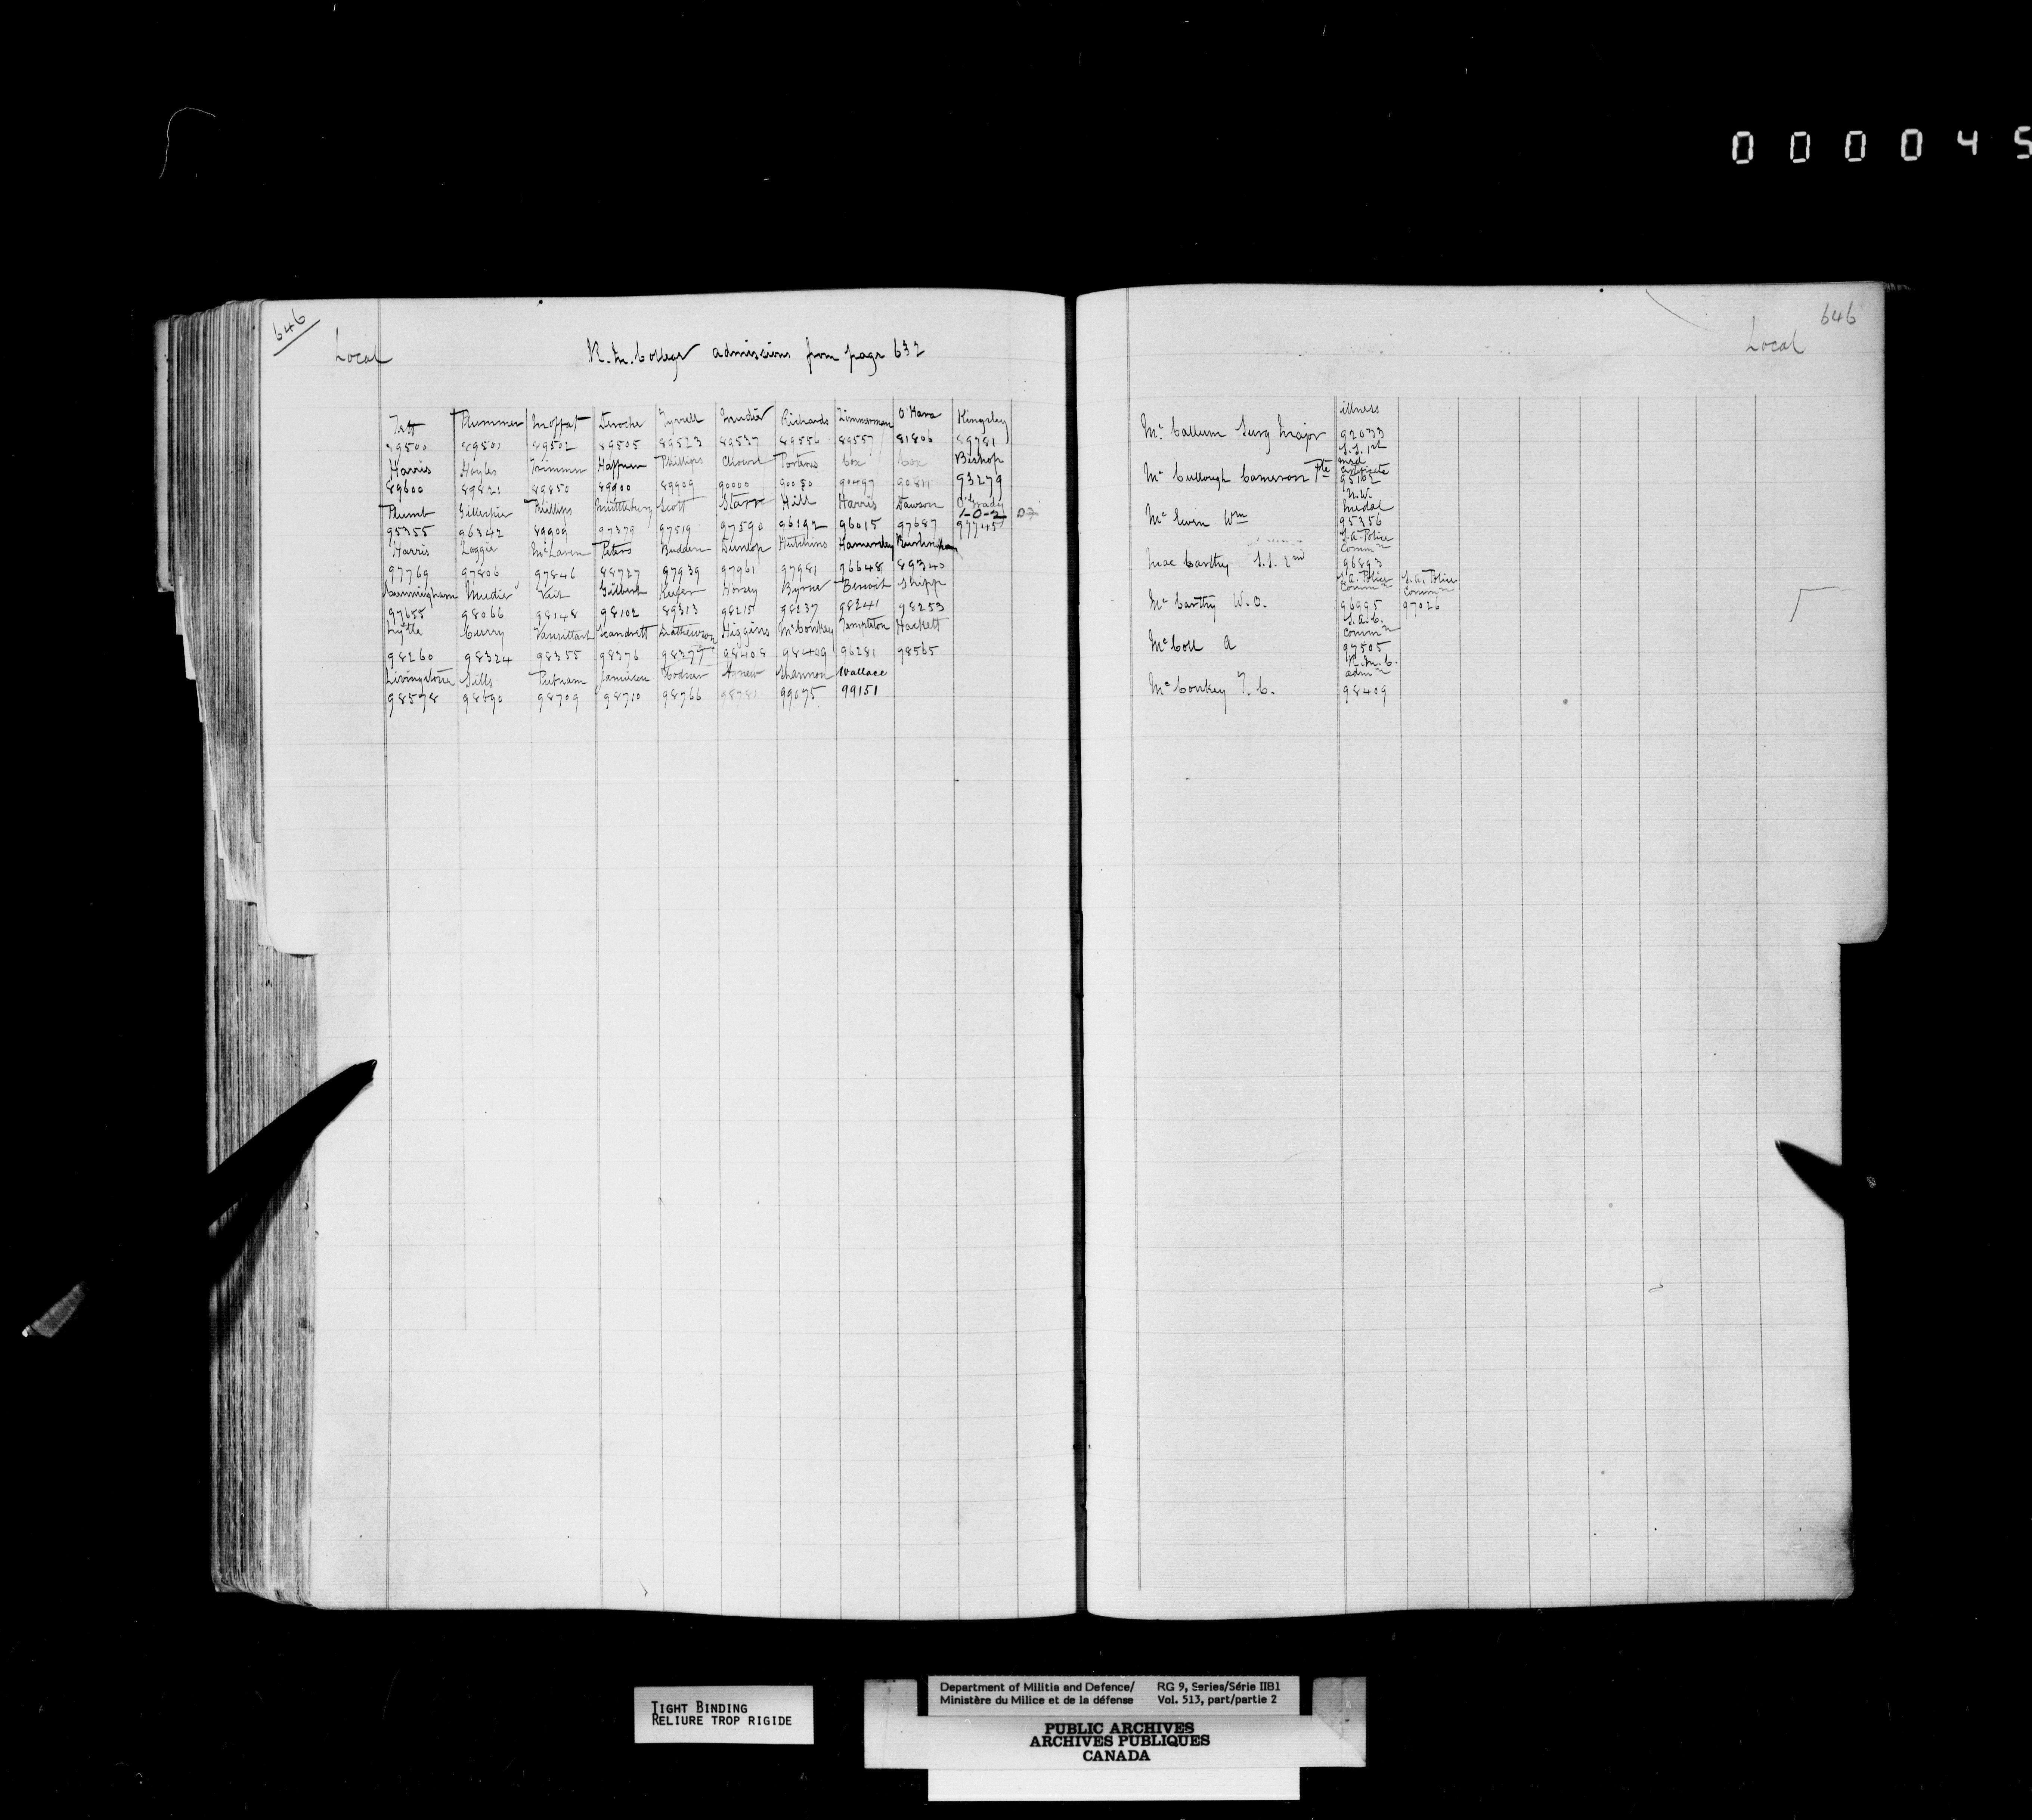 000045
646
Local
R.M. College admissions from page 632
Tett Plummer Moffat Deroche Tyrrell Richards Zimmerman O'Hara Kingsley
89500 89501 89502 89505 89523 89537 89556 89557 81806 89781
Harris Hoyles Trimmer Haffner Phillips Porteous Cox Cox Bishop
89600 89821 89850 89900 89909 90000 90080 90497 90811 93279
Plumb Gillespie Phillips Scott Starr Hill Harris Dawson O'Grady
1-0-2
95355 96342 89909 97379 97519 97590 96192 96015 97687 97745
Harris Loggie McLaren Peters Budden Dunlop Hutchins Hamersley
97769 97806 97846 88727 97939 97961 97981 96648 89340
Cunningham Gilbert Keefer Horsey Byrne Benoit Shipp
97655 98066 98148 98102 89313 98215 98237 98241 98253
Lytle Curry Vansittart Scandrett Mathewson Higgins McConkey Templeton Hackett
98260 98324 98355 98376 98377 98408 98409 96281 98565
Livingstone Sills Putnam Jamieson Agnew Shannon Wallace
98578 98690 98709 98710 98766 98781 99075 99151
646
Local
illness
McCallum Surg Major 92033
S.S. 1st
McCullough Cameron Pte Certificate
95102
N.W.
Medal
Wm 95356
S.A. Police
Commn
MacCarthy 2nd 96893
S.A. Police S.A. Police
Commn Commn
McCarthy W.O. 96995 97026
S.A.C.
Commn
McColl A 97505
R.M.C.
admn
McConkey T.C. 98409
TIGHT BINDING
RELIURE TROP RIGIDE
Department of Militia and Defence/ RG 9, Series/Série IIB1
Ministère du Milice et de la défense Vol. 513, part/partie 2
PUBLIC ARCHIVES
ARCHIVES PUBLIQUES
CANADA